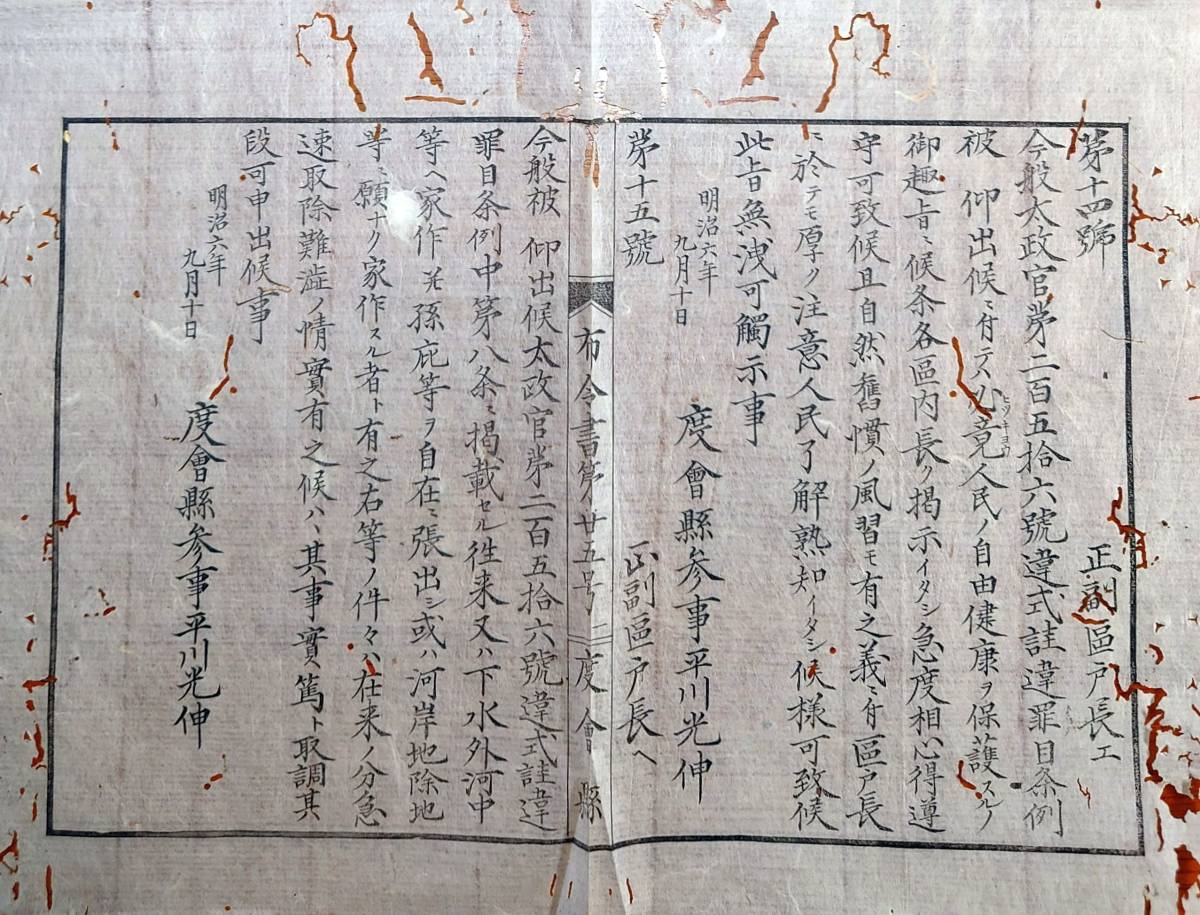 第十四號
正副區戸長エ
今般太政官第二百五拾六號違式詿違罪目条例
被　仰出候ニ付テハ必竟人民ノ自由健康ヲ保護スルノ
ヒツキヨウ
御趣旨ニ候条各區内長ク掲示イタシ急度相心得遵
守可致候且自然舊慣ノ風習モ有之義ニ付區戸長
ニ於テモ厚ク注意人民了解熟知イタシ候様可致候
此旨無洩可觸示事
明治六年
九月十日
度會縣参事平川光伸
第十五號
正副區戸長ヘ
布令書第廿五号
二
度會縣
今般被　仰出候太政官第二百五拾六號違式詿違
罪目条例中第八条ニ掲載セル徃来又ハ下水外河中
等ヘ家作并孫庇等ヲ自在ニ張出シ或ハ河岸地除地
等ニ願ナク家作スル者ト有之右等ノ件々ハ在来ノ分急
速取除難澁ノ情實有之候ハヽ其事實篤ト取調其
段可申出候事
明治六年
九月十日
度會縣参事平川光伸